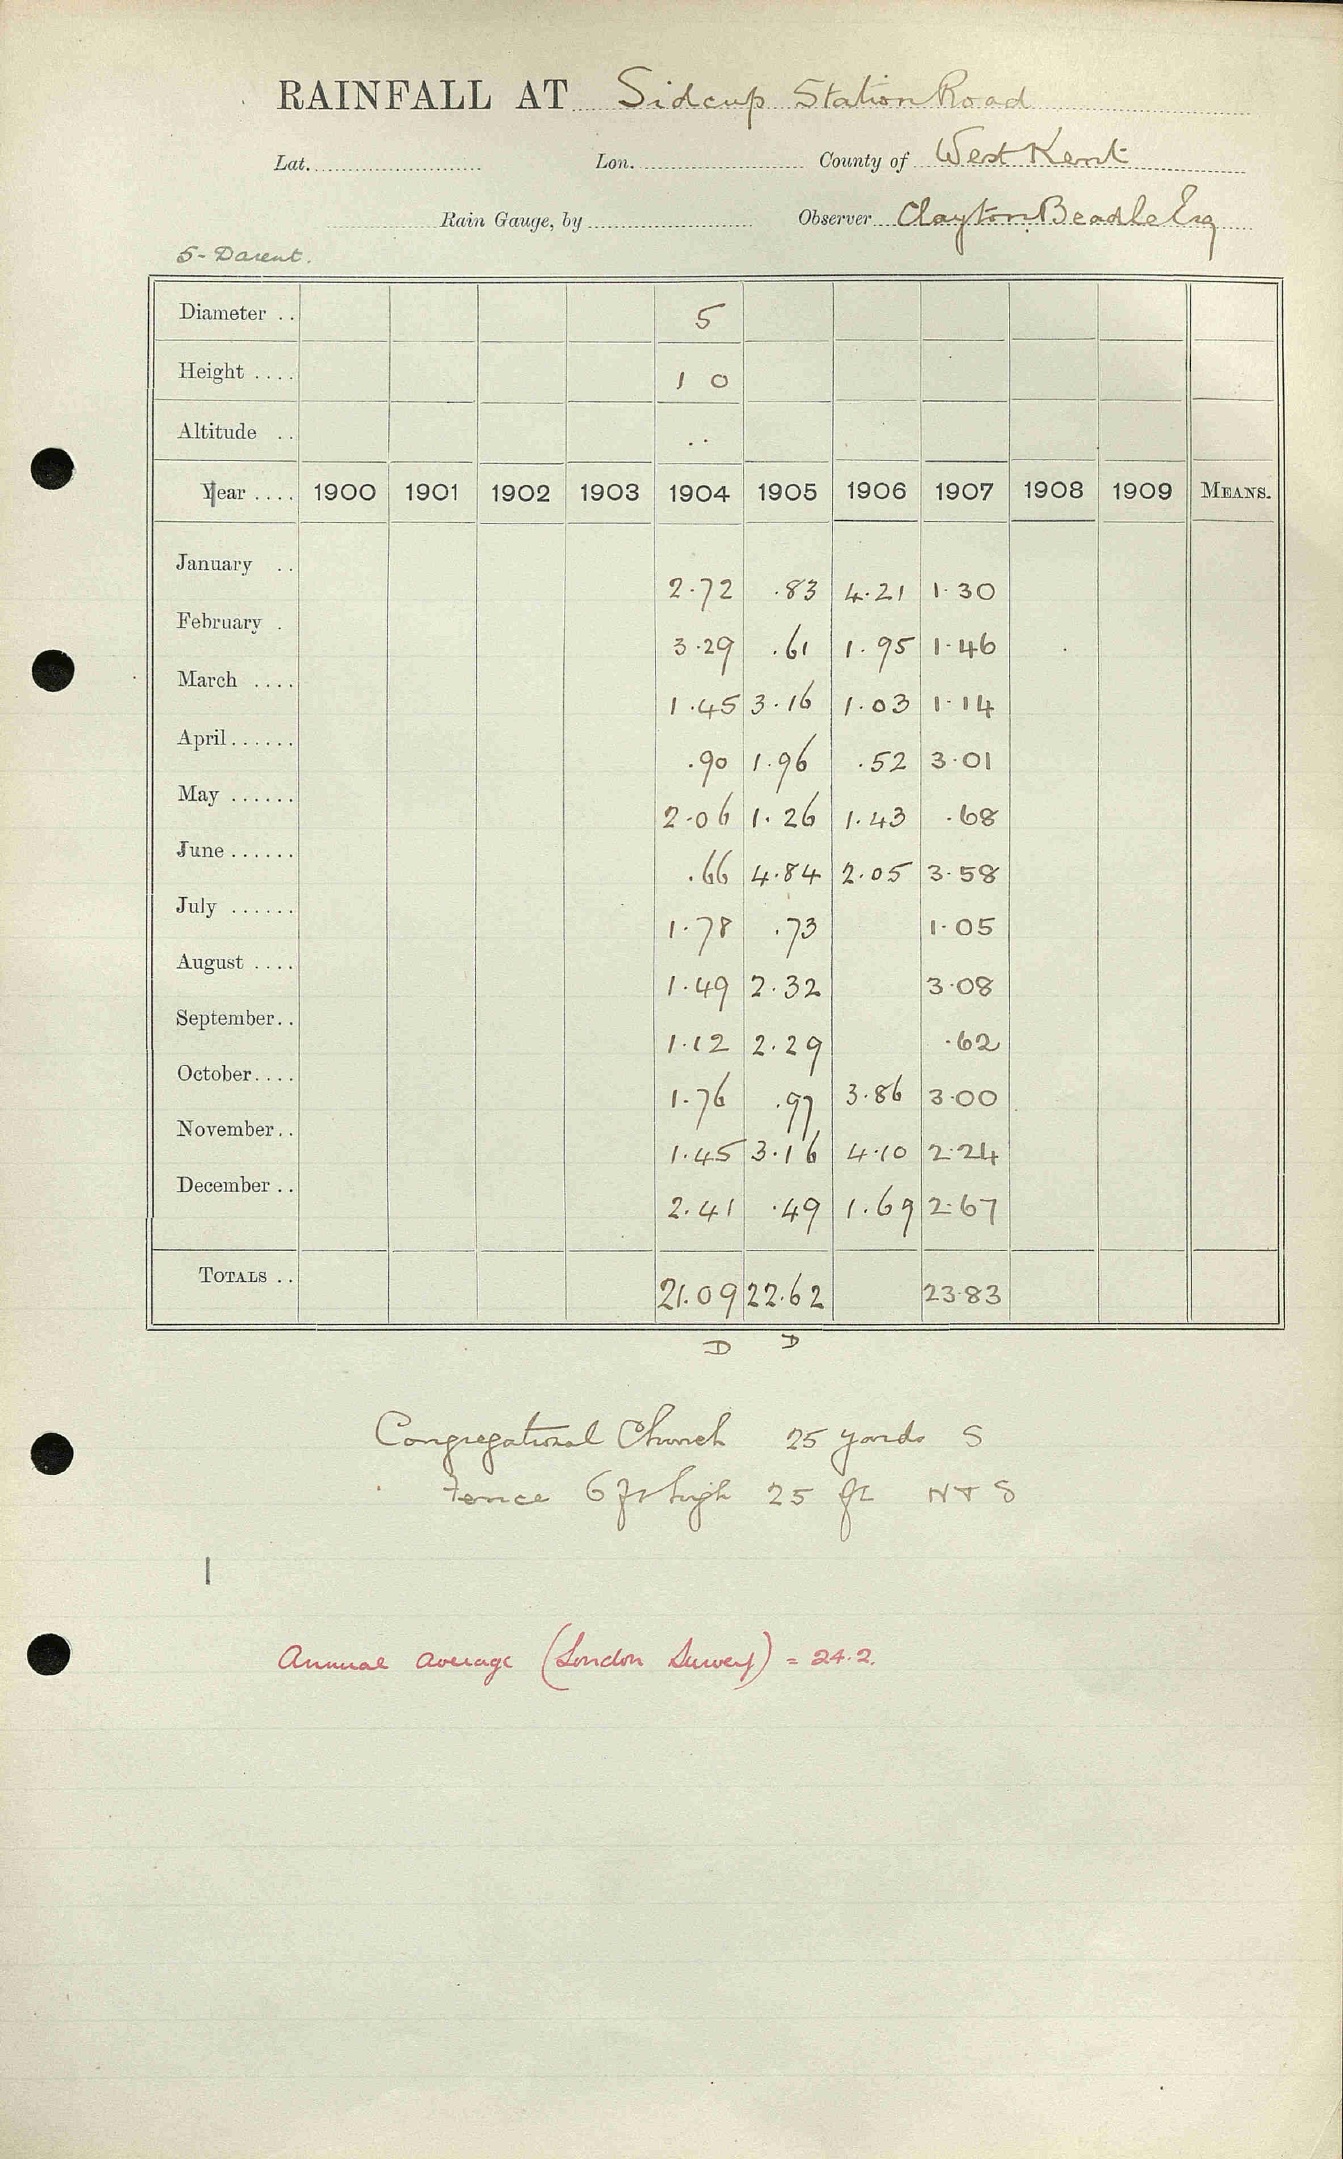 RAINFALL AT Sidcup Station Road
Lat. Lon. County of West Kent
Rain Gauge, by Observer Clayton Beadle Esq
5- Darent.
Diameter .. 5
Height .... 1 0
Altitude .. ..
Year .... 1900 1901 1902 1903 1904 1905 1906 1907 1908 1909 MEANS.
January .. 2.72 .83 4.21 1.30
February . 3.29 .61 1.95 1.46
March .... 1.45 3.16 1.03 1.14
April...... .90 1.96 .52 3.01
May ...... 2.06 1.26 1.43 .68
June ...... .66 4.84 2.05 3.58
July ...... 1.78 .73 1.05
August .... 1.49 2.32 3.08
September.. 1.12 2.29 .62
October.... 1.76 .97 3.86 3.00
November.. 1.45 3.16 4.10 2.24
December .. 2.41 .49 1.69 2.67
TOTALS .. 21.09 22.62 23.83
D D
Congregational Church 25 yards S
Fence 6 ft high 25 ft N + S
Annual average (London Survey) = 24.2.